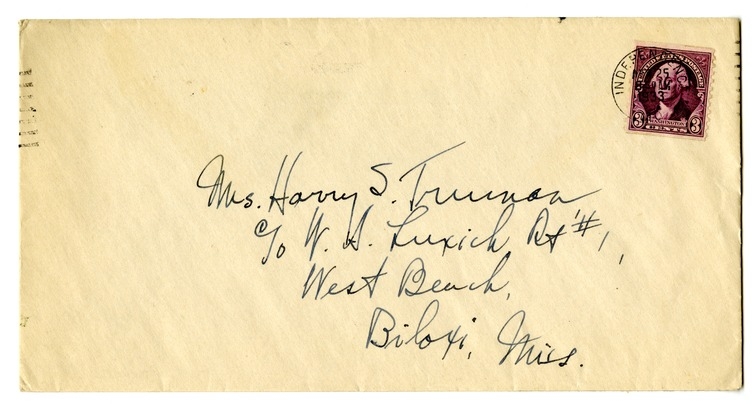 INDEPEN
25
UNITED STATES POSTAGE
WASHINGTON
3 CENTS 3
Mrs. Harry S. Truman
c/o W. A. Luxich Rt #1,
West Beach,
Biloxi, Miss.